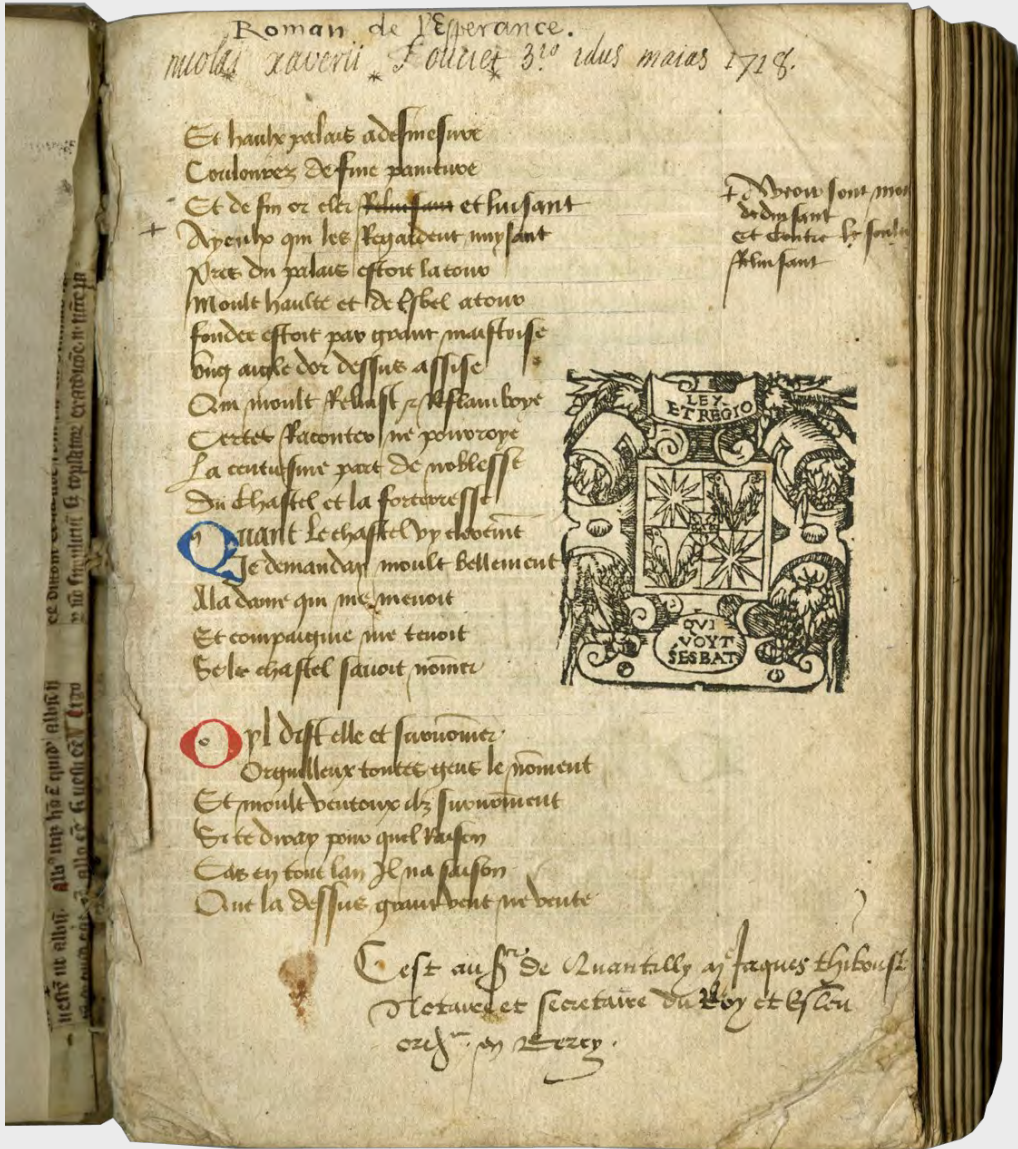 Roman de l'Esperance.
nicolas xaverii Fouriet 3.io idus maias 1718.
Et haulx palais a desmesure
Coulourez de fine painture
Et de fin or cler Reluisant et luisant
+ Ayeulx qui les Regardent nuysant
Pres du palais estoit la tour
Moult haulte et de tresbel atour
fondee estoit par grant maistrise
Ung aigle dor dessus assise
Qui moult Reluist et Reflamboye
Certes Raconter ne pourroye
La centiesme part de noblesse
Du chastel et la forteresse
Quant Le chasteL vy clerement
Je demanday moult bellement
A la dame qui me menoit
Et compaignie me tenoit
Se le chastel savoit nommer
Oyl dist elle et surnommer
Orguilleux toutes gens le nomment
Et moult venteux ilz surnomment
Si te diray pour quel Raison
Car en tout lan Il na saison
Que la dessus grant vent ne vente
+ sont
deduisant
et contre le
Reluisant
LEX
ET REGIO
QUI
VOYT
SESBAT
C'est au Sr de Quantilly Jaques thiboust
Notaire et secretaire du Roy et Esleu
en Berry.